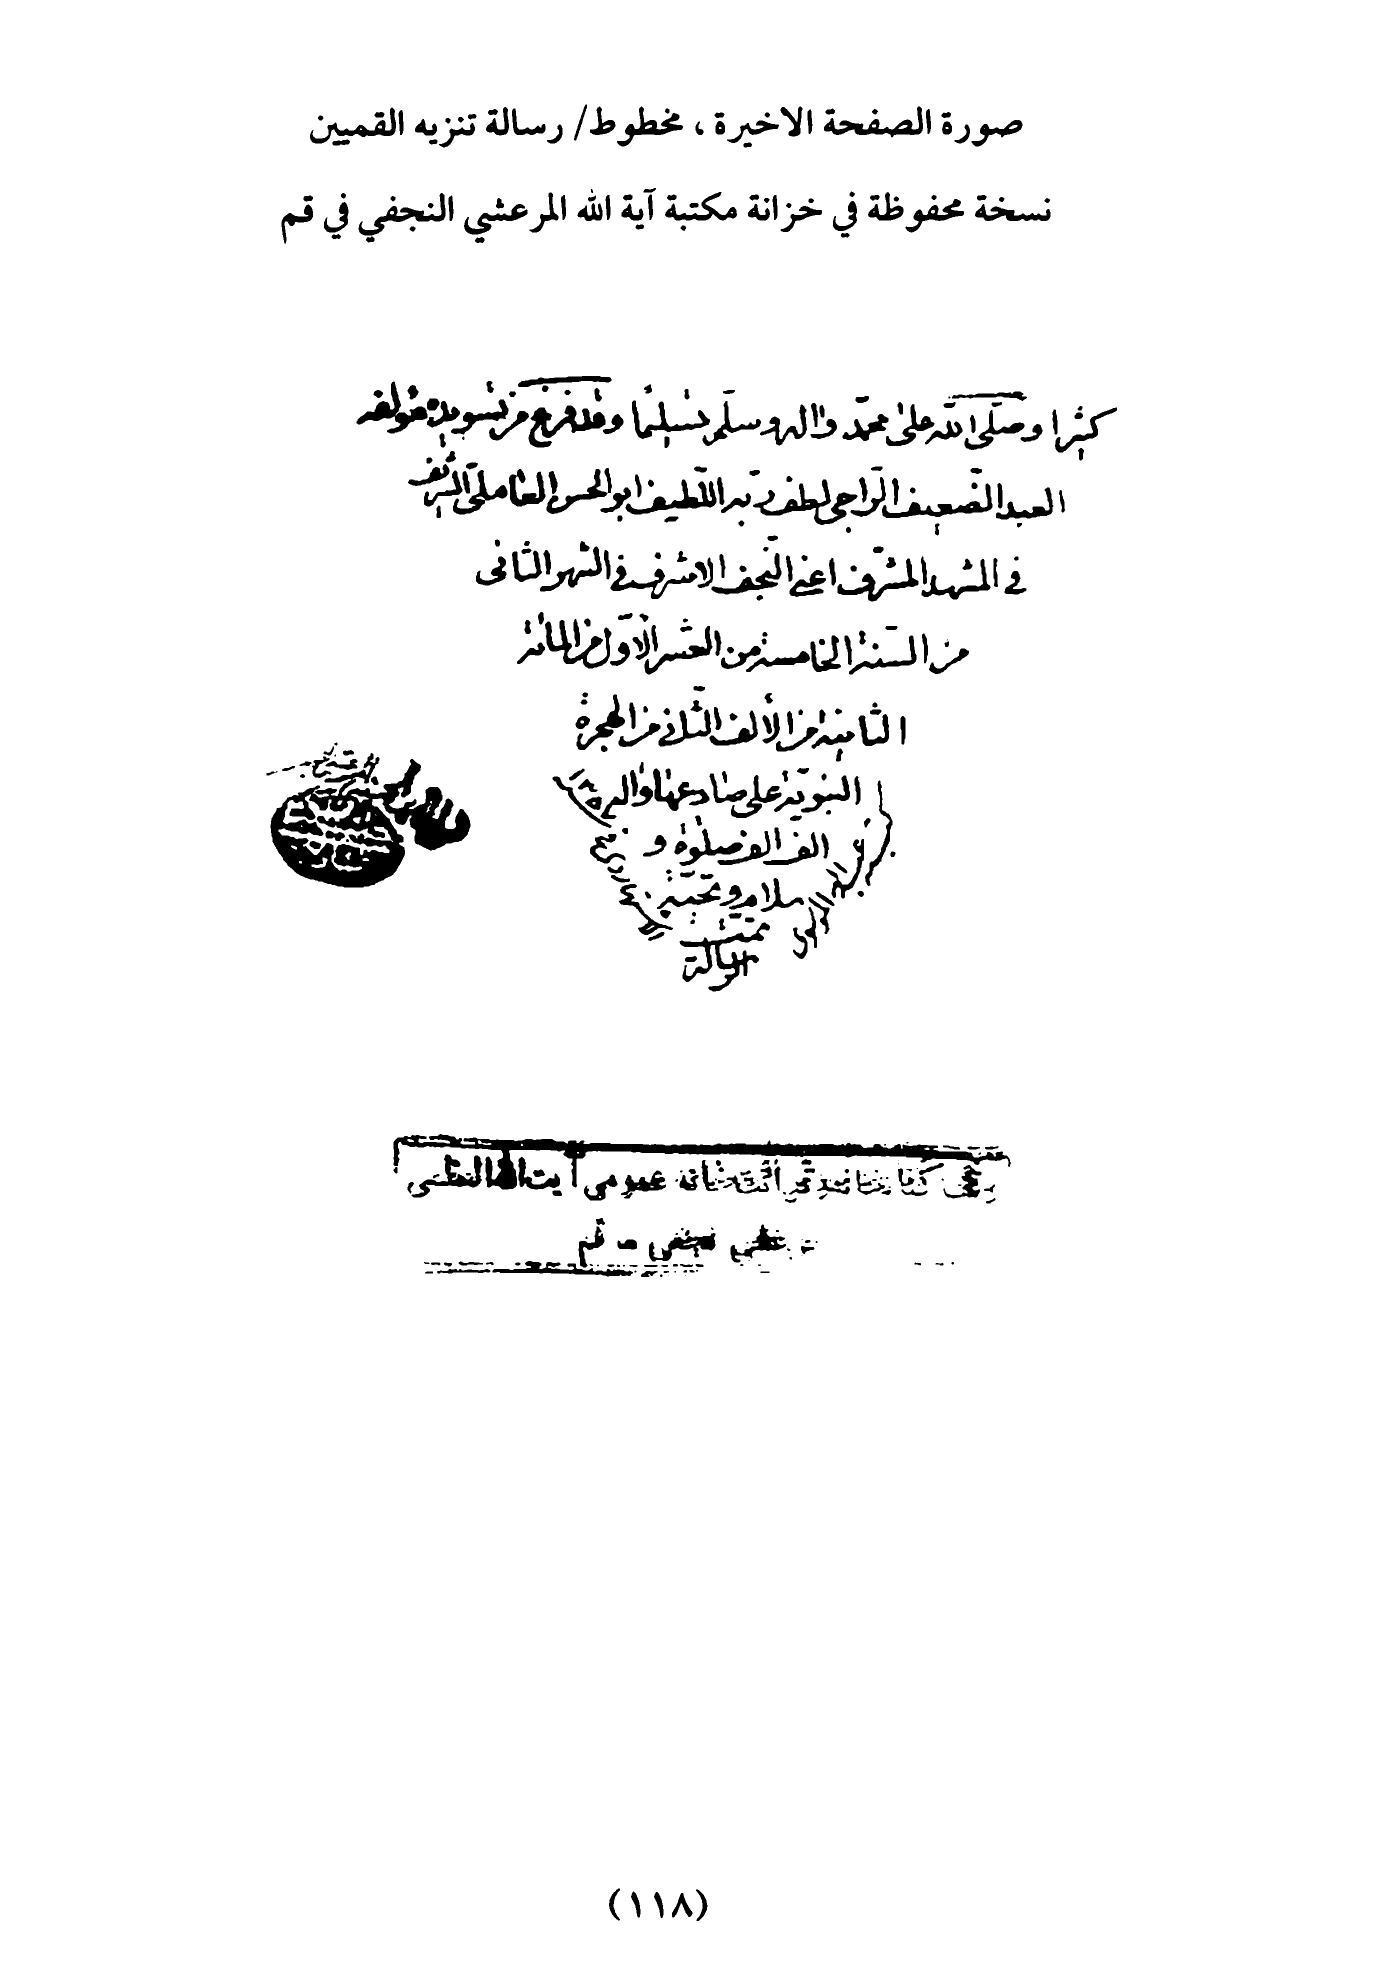 صورة الصفحة الاخيرة ، مخطوط/ رسالة تنزيه القميين
نسخة محفوظة في خزانة مكتبة آية الله المرعشي النجفي في قم
كثيرا وصلى الله على محمد واله وسلم تسليما وقد فرغ من تسويده مؤلفه
العبد الضعيف الراجي لطف ربه اللطيف ابو الحسن العاملي الشريف
في المشهد المشرف اعني النجف الاشرف في الشهر الثاني
من السنة الخامسة من العشر الاول من المائة
الثامنة من الألف الثاني من الهجرة
النبوية على صادعها واله
الف الف صلوة و
سلام وتحية
تمت
الرسالة
كتابخانه عمومي آيت الله العظمى
مرعشي نجفي - قم
(١١٨)